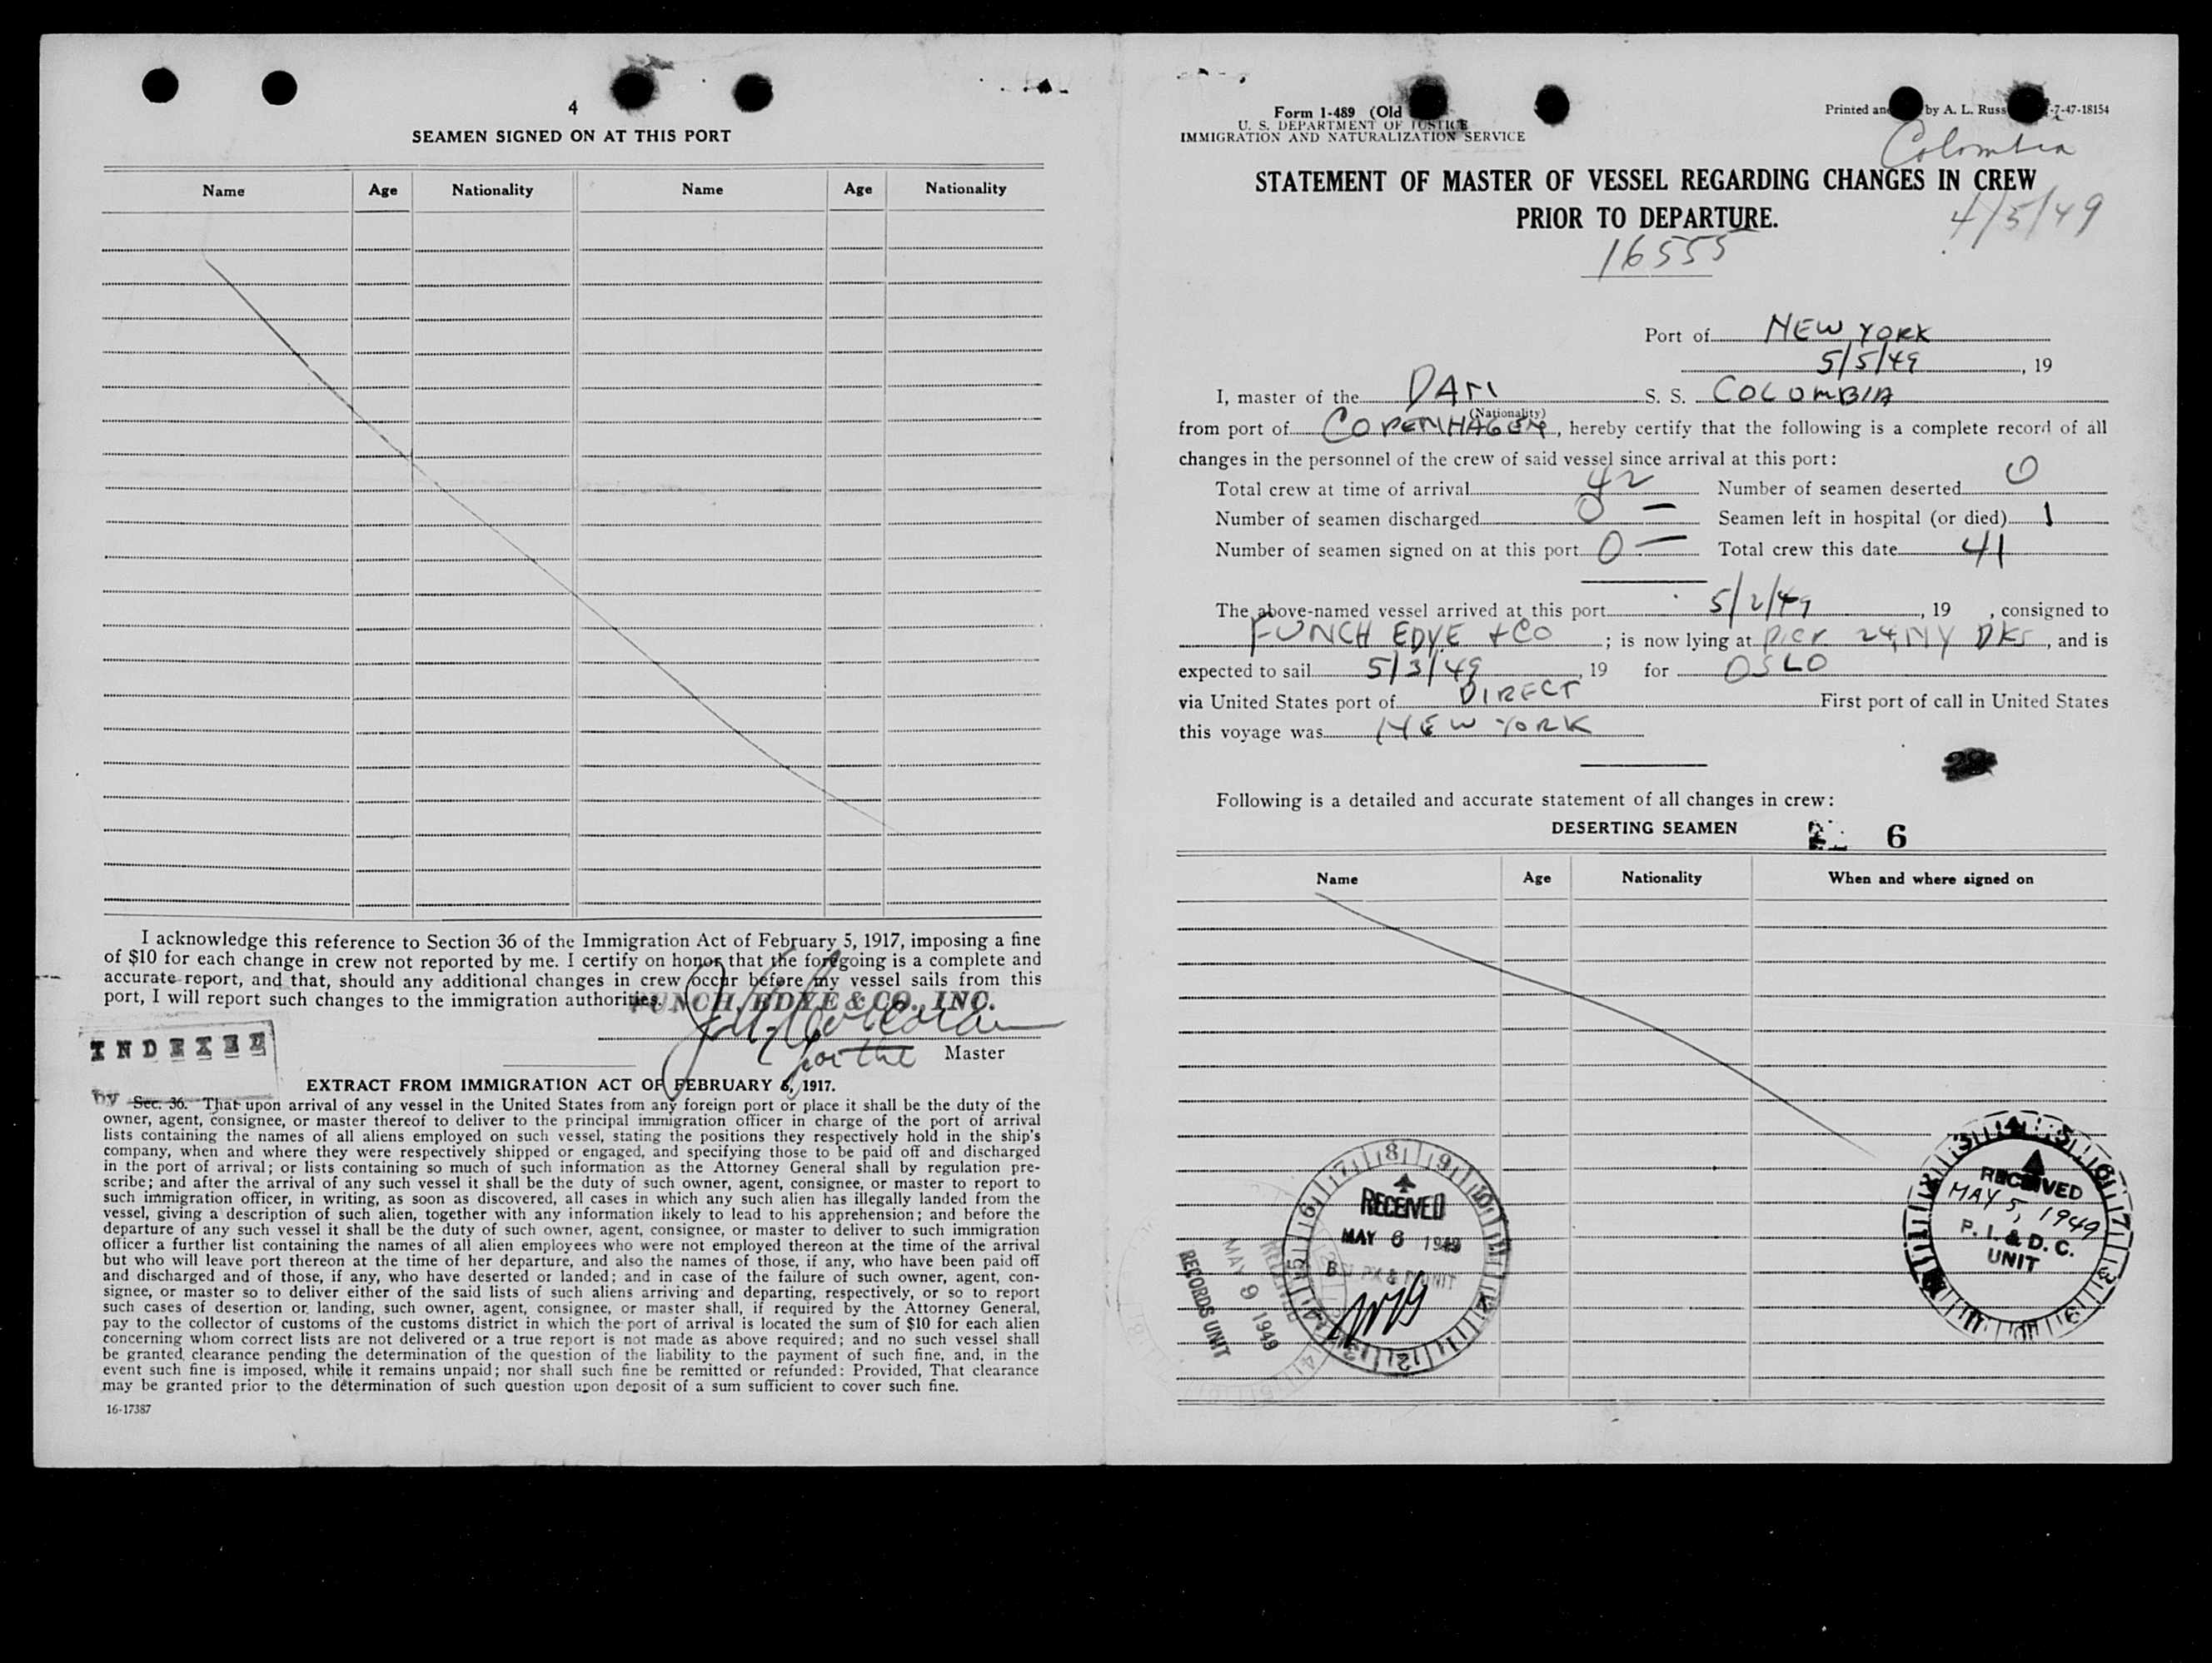 4
SEAMEN SIGNED ON AT THIS PORT
Name Age Nationality Name Age Nationality
I acknowledge this reference to Section 36 of the Immigration Act of February 5, 1917, imposing a fine
of $10 for each change in crew not reported by me. I certify on honor that the foregoing is a complete and
accurate report, and that, should any additional changes in crew occur before my vessel sails from this
port, I will report such changes to the immigration authorities.
FUNCH, EDYE & CO., INC.
for the Master
INDEXED
by
EXTRACT FROM IMMIGRATION ACT OF FEBRUARY 5, 1917.
Sec. 36. That upon arrival of any vessel in the United States from any foreign port or place it shall be the duty of the
owner, agent, consignee, or master thereof to deliver to the principal immigration officer in charge of the port of arrival
lists containing the names of all aliens employed on such vessel, stating the positions they respectively hold in the ship's
company, when and where they were respectively shipped or engaged, and specifying those to be paid off and discharged
in the port of arrival; or lists containing so much of such information as the Attorney General shall by regulation pre-
scribe; and after the arrival of any such vessel it shall be the duty of such owner, agent, consignee, or master to report to
such immigration officer, in writing, as soon as discovered, all cases in which any such alien has illegally landed from the
vessel, giving a description of such alien, together with any information likely to lead to his apprehension; and before the
departure of any such vessel it shall be the duty of such owner, agent, consignee, or master to deliver to such immigration
officer a further list containing the names of all alien employees who were not employed thereon at the time of the arrival
but who will leave port thereon at the time of her departure, and also the names of those, if any, who have been paid off
and discharged and of those, if any, who have deserted or landed; and in case of the failure of such owner, agent, con-
signee, or master so to deliver either of the said lists of such aliens arriving and departing, respectively, or so to report
such cases of desertion or landing, such owner, agent, consignee, or master shall, if required by the Attorney General,
pay to the collector of customs of the customs district in which the port of arrival is located the sum of $10 for each alien
concerning whom correct lists are not delivered or a true report is not made as above required; and no such vessel shall
be granted clearance pending the determination of the question of the liability to the payment of such fine, and, in the
event such fine is imposed, while it remains unpaid; nor shall such fine be remitted or refunded: Provided, That clearance
may be granted prior to the determination of such question upon deposit of a sum sufficient to cover such fine.
16-17387
Form 1-489 (Old
U. S. DEPARTMENT OF JUSTICE
IMMIGRATION AND NATURALIZATION SERVICE
Printed and by A. L. Russ -7-47-18154
Colombia
STATEMENT OF MASTER OF VESSEL REGARDING CHANGES IN CREW
PRIOR TO DEPARTURE.
4/5/49
16555
Port of NEW YORK
5/5/49, 19
I, master of the DAN S. S. COLOMBIA
(Nationality)
from port of COPENHAGEN, hereby certify that the following is a complete record of all
changes in the personnel of the crew of said vessel since arrival at this port:
Total crew at time of arrival 42 Number of seamen deserted 0
Number of seamen discharged 0 — Seamen left in hospital (or died) 1
Number of seamen signed on at this port 0 — Total crew this date 41
The above-named vessel arrived at this port 5/2/49, 19 , consigned to
FUNCH EDYE + CO; is now lying at Pier 24, NY DKS, and is
expected to sail 5/3/49, 19 for OSLO
via United States port of DIRECT First port of call in United States
this voyage was NEW YORK
Following is a detailed and accurate statement of all changes in crew:
DESERTING SEAMEN
6
Name Age Nationality When and where signed on
RECEIVED
MAY 6 1949
RECEIVED
MAY 9 1949
RECORDS UNIT
RECEIVED
MAY 5, 1949
P. I. & D. C.
UNIT